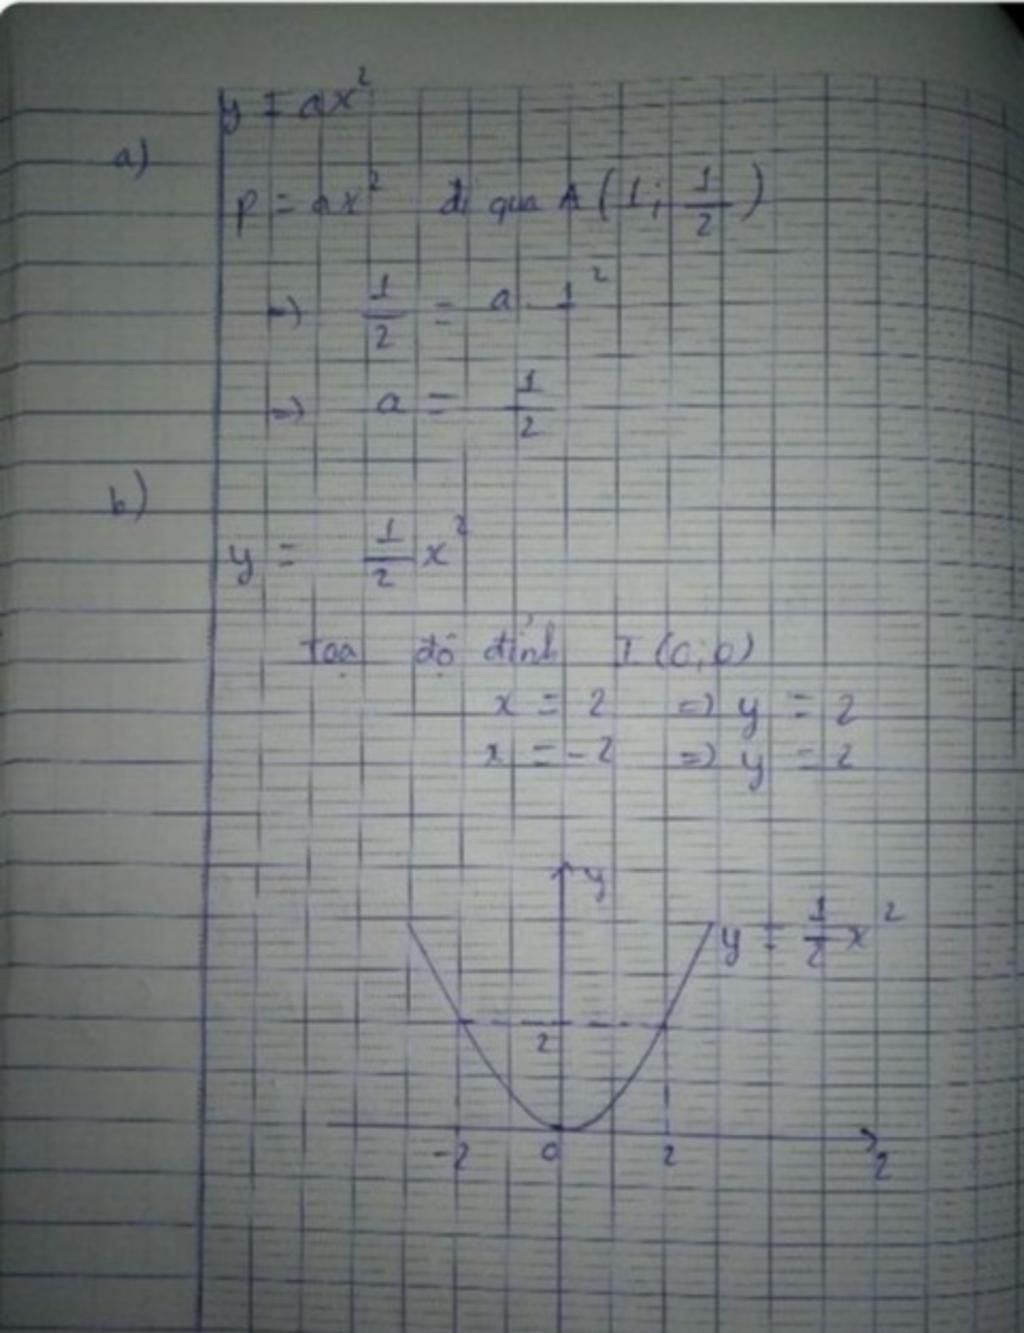 y = ax²
a)
P = ax² đi qua A (1; 1/2)
=) 1/2 = a . 1²
=) a = 1/2
b)
y = 1/2 x²
Toạ độ đỉnh I (0; 0)
x = 2 =) y = 2
x = -2 =) y = 2
y
y = 1/2 x²
2
-2 0 2